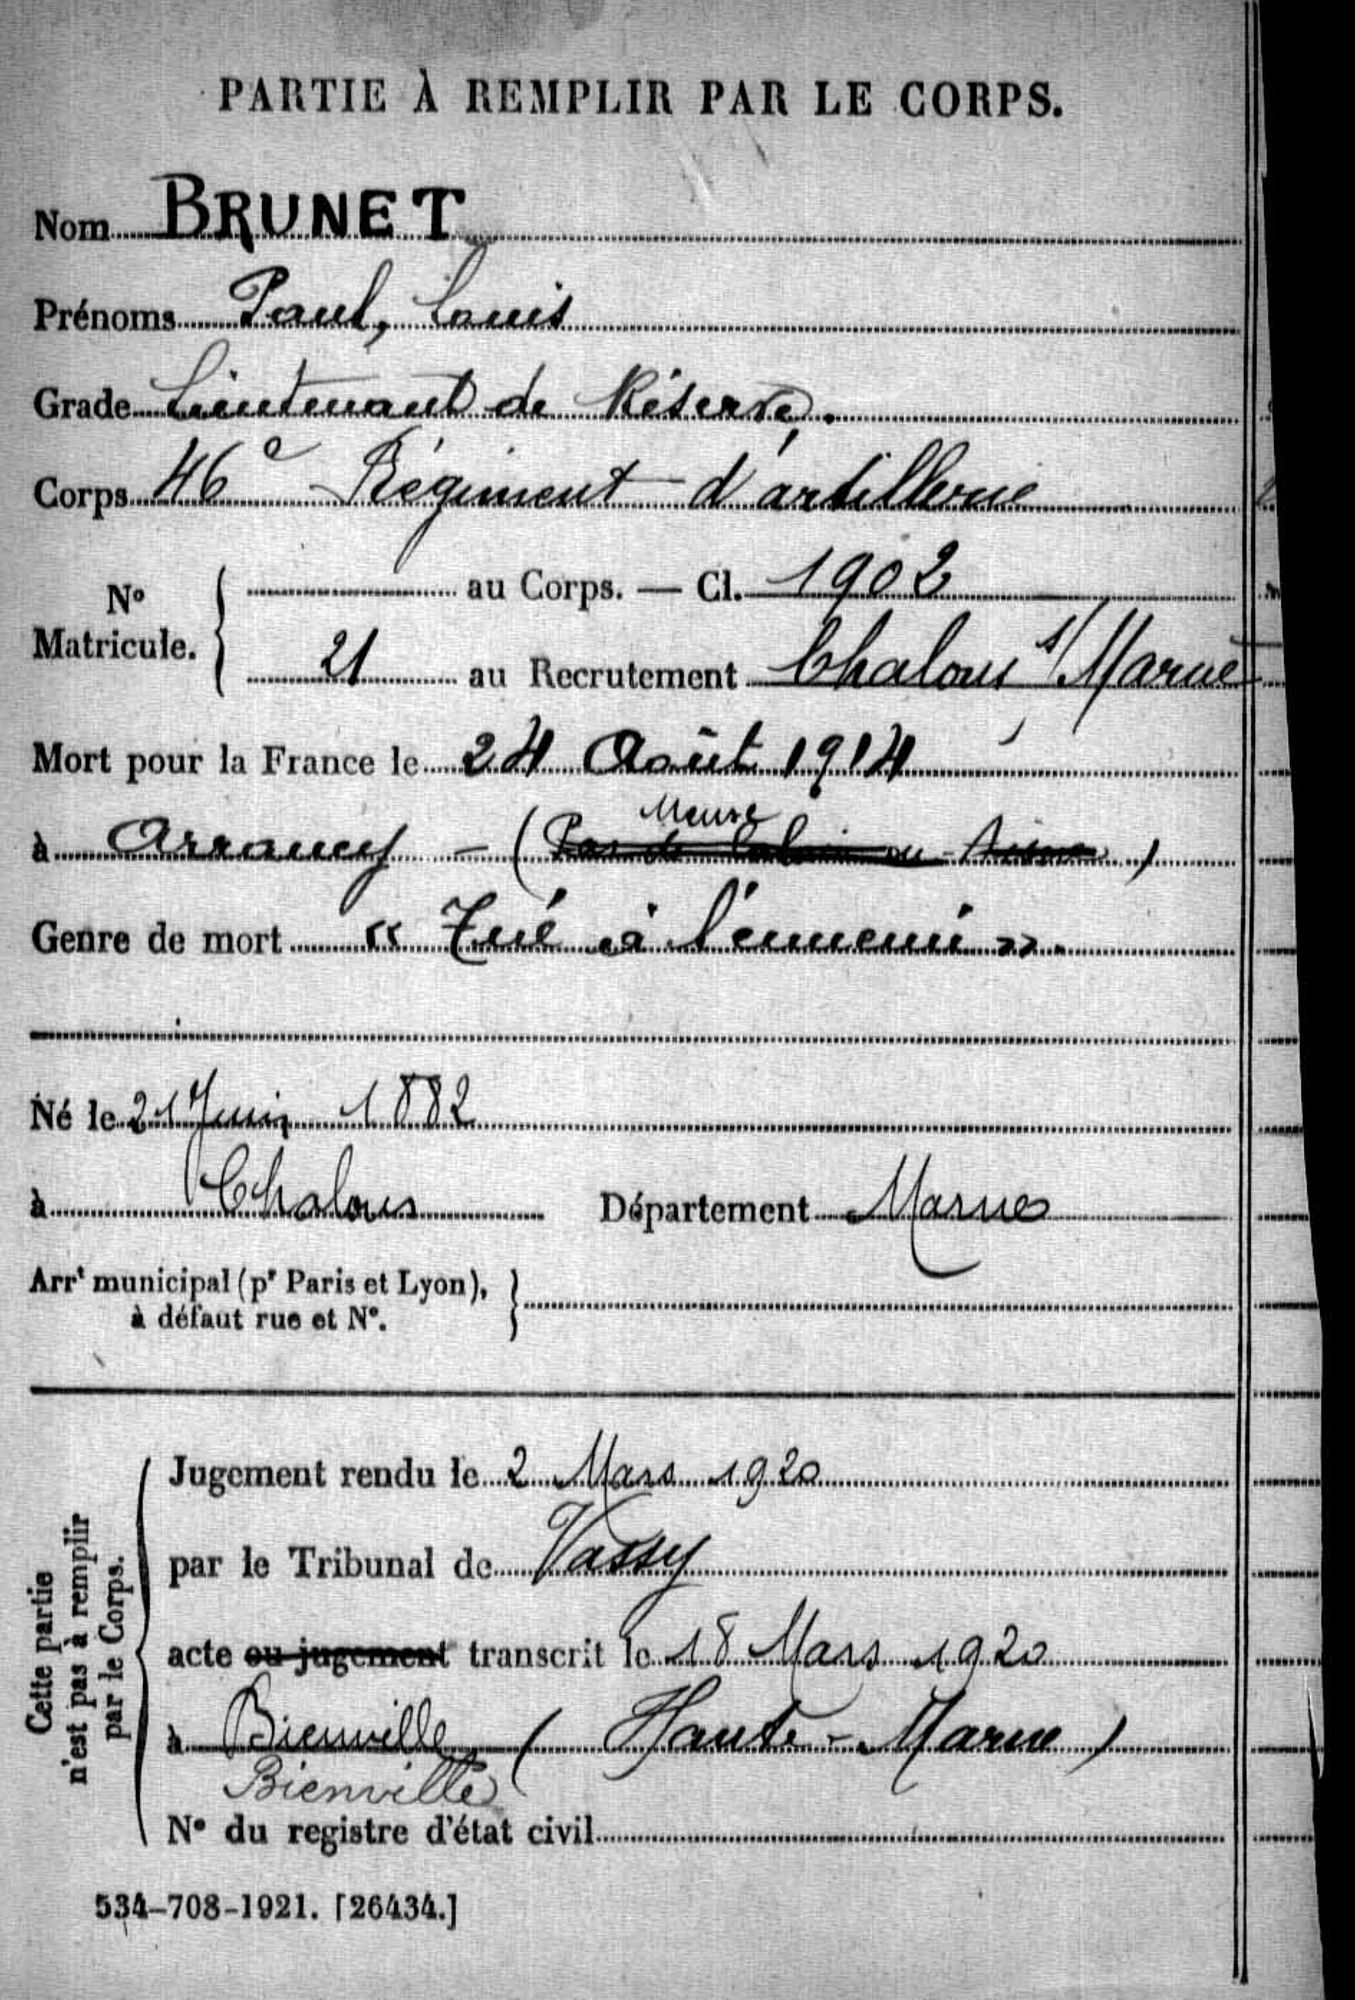 PARTIE À REMPLIR PAR LE CORPS.
Nom BRUNET
Prénoms Paul, Louis
Grade Lieutenant de Réserve.
Corps 46e Régiment d'artillerie
No Matricule. { au Corps. — Cl. 1902
21 au Recrutement Chalons s/Marne
Mort pour la France le 24 Août 1914
Meuse
à Arrancy - (Pas de Calais ou Aisne)
Genre de mort « Tué à l'ennemi ».
Né le 21 Juin 1882
à Chalons Département Marne
Arrt municipal (pr Paris et Lyon),
à défaut rue et No.
Cette partie
n'est pas à remplir
par le Corps.
Jugement rendu le 2 Mars 1920
par le Tribunal de Vassy
acte ou jugement transcrit le 18 Mars 1920
à Bienville (Haute-Marne)
Bienville
No du registre d'état civil
534-708-1921. [26434.]